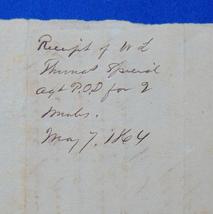 Receipt of W L
Thomas Special
agt P.O.D for 2
Mules.
May 7, 1864